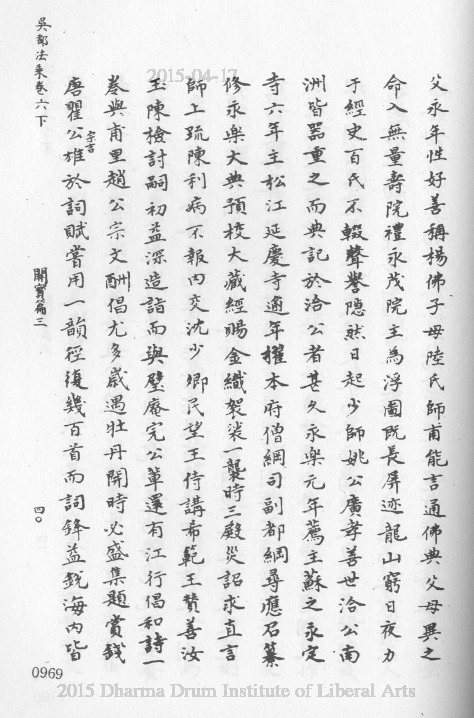 父永年性好善稱楊佛子母陸氏師甫能言通佛典父母異之
命入無量壽院禮永茂院主為浮圖既長屏迹龍山窮日夜力
于經史百氏不輟聲譽隱然日起少師姚公廣孝善世洽公南
洲皆器重之而典記於洽公者甚久永樂元年薦主蘇之永定
寺六年主松江延慶寺逾年擢本府僧綱司副都綱尋應召纂
修永樂大典預校大藏經賜金織袈裟一襲時三殿災詔求直言
師上疏陳利病不報內交沈少卿民望王侍講希範王贊善汝
玉陳檢討嗣初益深造詣而與璧庵完公輩還有江行倡和詩一
卷與甫里趙公宗文酬倡尤多歲遇牡丹開時必盛集題賞錢
唐瞿公宗吉雄於詞賦嘗用一韻徑復幾百首而詞鋒益銳海內皆
吳都法乘卷六下
開賓篇三
四〇
0969
2015-04-17
2015 Dharma Drum Institute of Liberal Arts